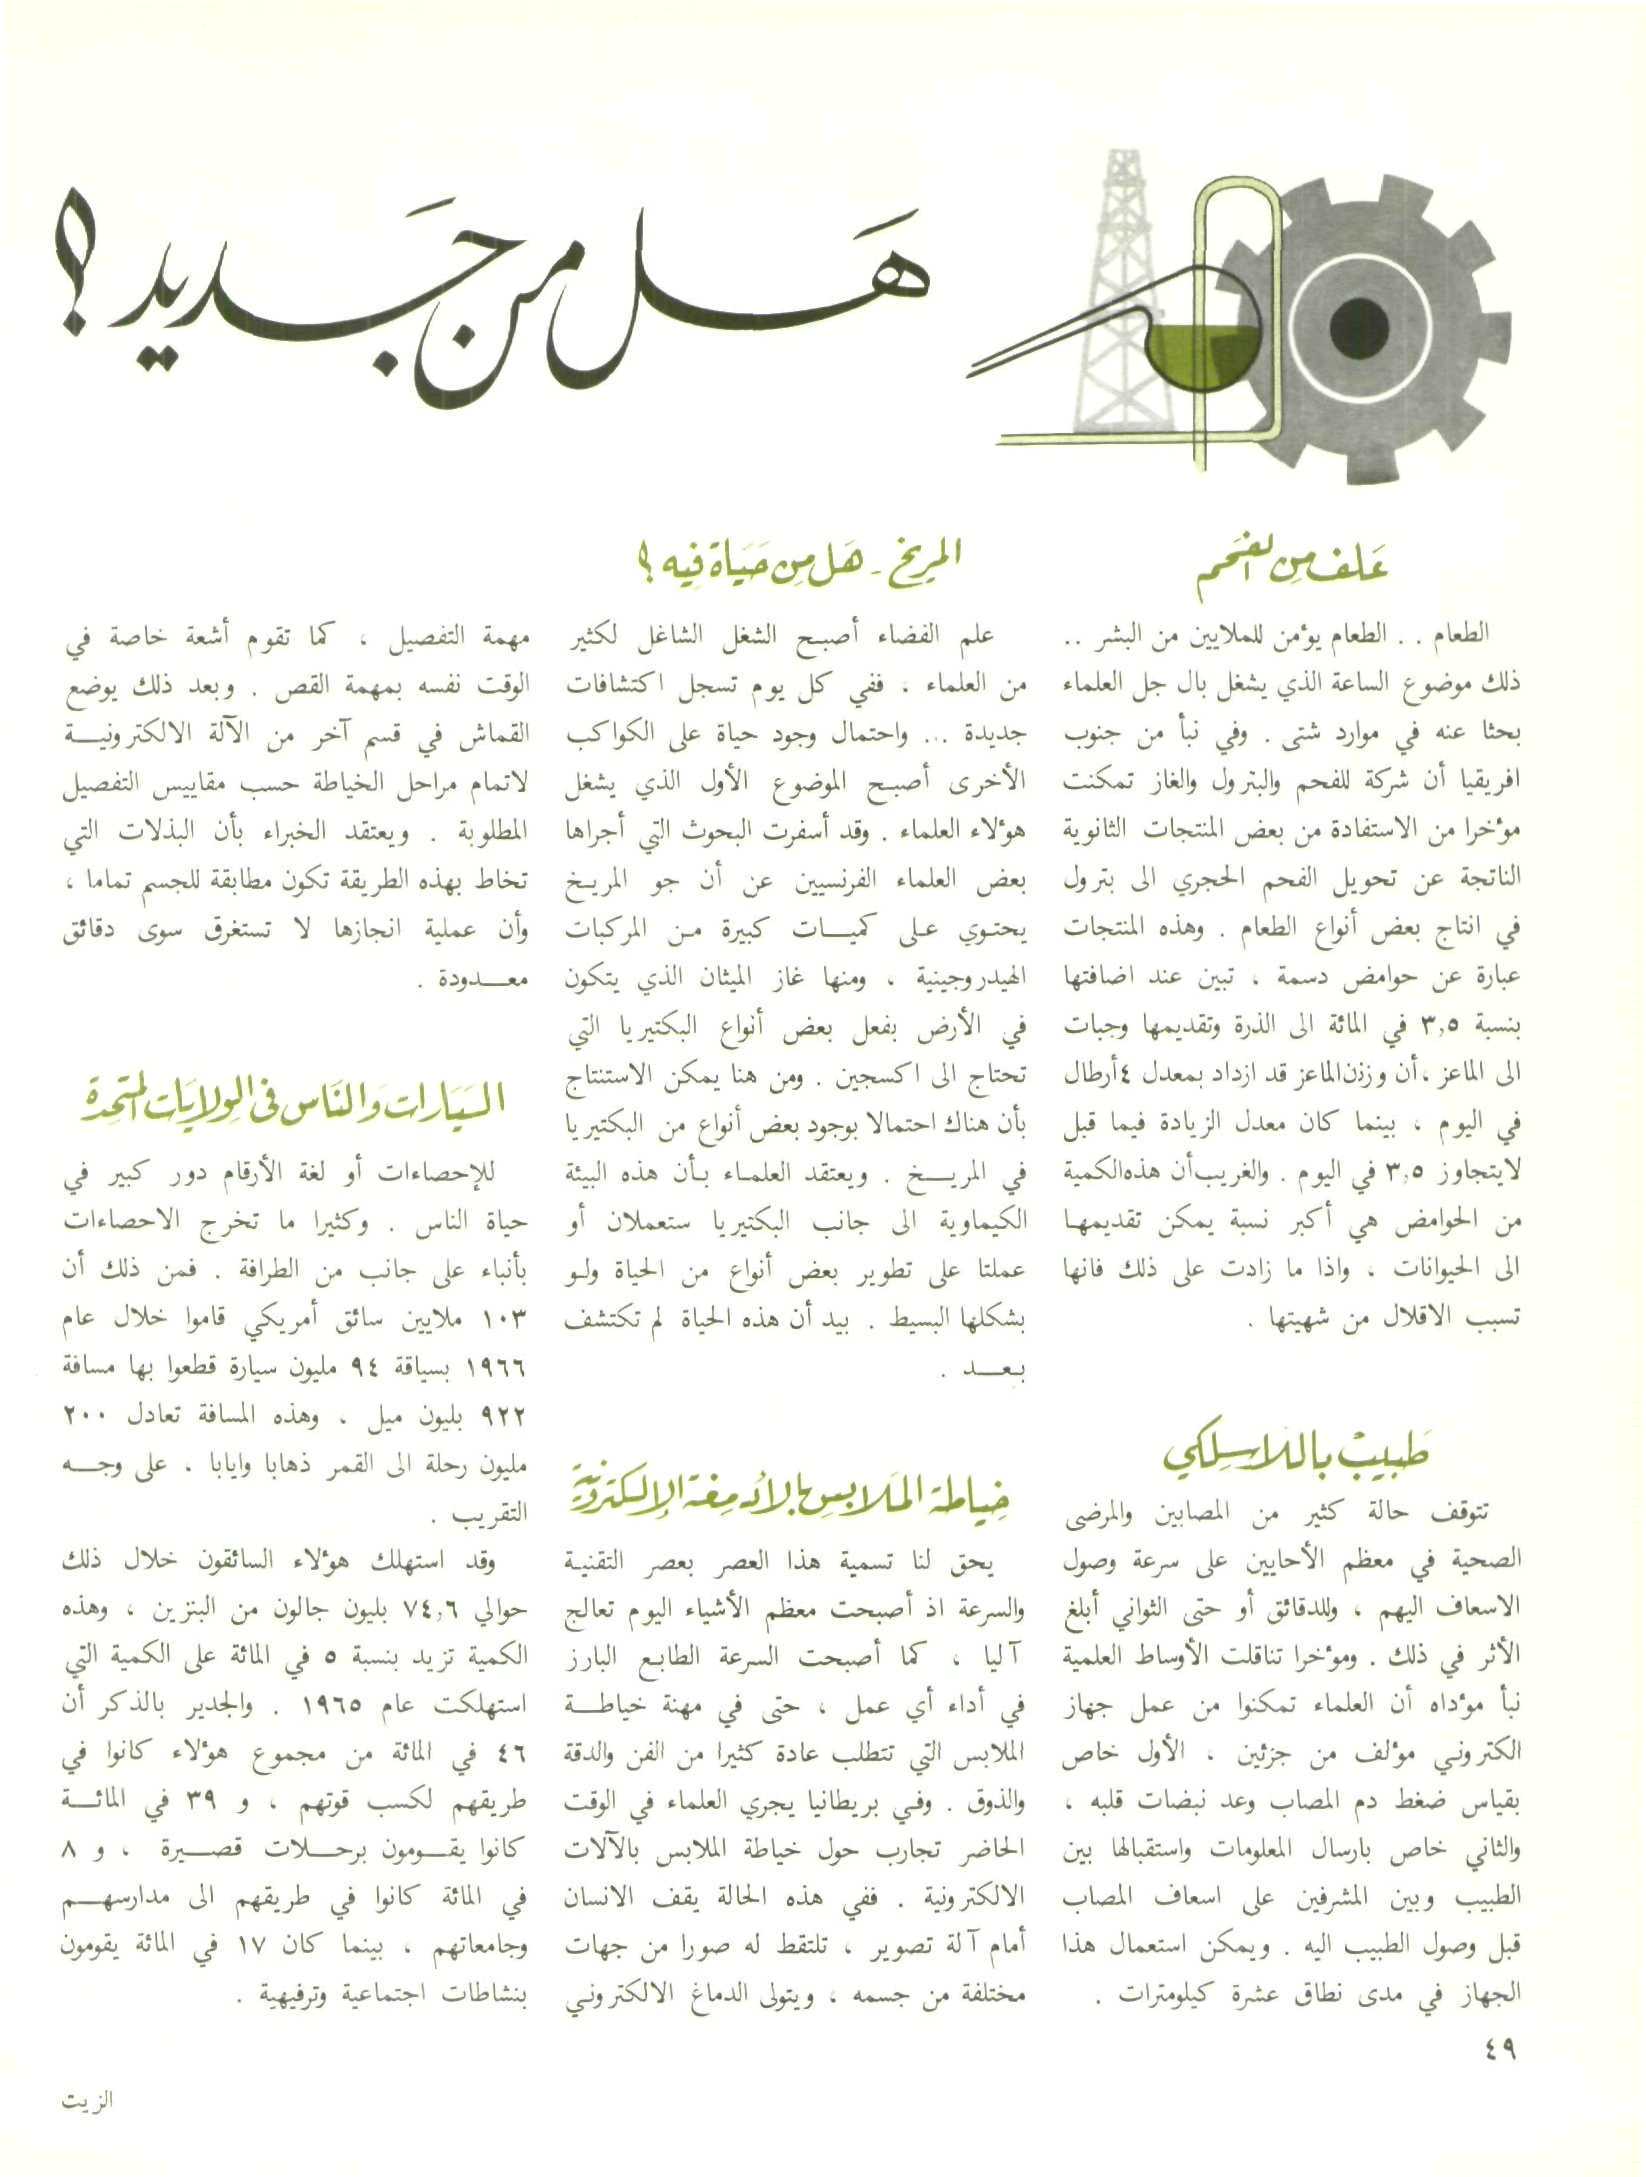 هل من جديد ؟
علف من الفحم
الطعام . . الطعام يؤمن للملايين من البشر ..
ذلك موضوع الساعة الذي يشغل بال جل العلماء
بحثا عنه في موارد شتى . وفي نبأ من جنوب
افريقيا أن شركة للفحم والبترول والغاز تمكنت
مؤخرا من الاستفادة من بعض المنتجات الثانوية
الناتجة عن تحويل الفحم الحجري الى بترول
في انتاج بعض أنواع الطعام . وهذه المنتجات
عبارة عن حوامض دسمة ، تبين عند اضافتها
بنسبة ٣,٥ في المائة الى الذرة وتقديمها وجبات
الى الماعز ، أن وزن الماعز قد ازداد بمعدل ٤ أرطال
في اليوم ، بينما كان معدل الزيادة فيما قبل
لايتجاوز ٣,٥ في اليوم . والغريب أن هذه الكمية
من الحوامض هي أكبر نسبة يمكن تقديمها
الى الحيوانات ، واذا ما زادت على ذلك فانها
تسبب الاقلال من شهيتها .
طبيب باللاسلكي
تتوقف حالة كثير من المصابين والمرضى
الصحية في معظم الأحايين على سرعة وصول
الاسعاف اليهم ، وللدقائق أو حتى الثواني أبلغ
الأثر في ذلك . ومؤخرا تناقلت الأوساط العلمية
نبأ مؤداه أن العلماء تمكنوا من عمل جهاز
الكتروني مؤلف من جزئين ، الأول خاص
بقياس ضغط دم المصاب وعد نبضات قلبه ،
والثاني خاص بارسال المعلومات واستقبالها بين
الطبيب وبين المشرفين على اسعاف المصاب
قبل وصول الطبيب اليه . ويمكن استعمال هذا
الجهاز في مدى نطاق عشرة كيلومترات .
المريخ - هل من حياة فيه ؟
علم الفضاء أصبح الشغل الشاغل لكثير
من العلماء ، ففي كل يوم تسجل اكتشافات
جديدة ... واحتمال وجود حياة على الكواكب
الأخرى أصبح الموضوع الأول الذي يشغل
هؤلاء العلماء . وقد أسفرت البحوث التي أجراها
بعض العلماء الفرنسيين عن أن جو المريخ
يحتوي على كميات كبيرة من المركبات
الهيدروجينية ، ومنها غاز الميثان الذي يتكون
في الأرض بفعل بعض أنواع البكتيريا التي
تحتاج الى اكسجين . ومن هنا يمكن الاستنتاج
بأن هناك احتمالا بوجود بعض أنواع من البكتيريا
في المريخ . ويعتقد العلماء بأن هذه البيئة
الكيماوية الى جانب البكتيريا ستعملان أو
عملتا على تطوير بعض أنواع من الحياة ولو
بشكلها البسيط . بيد أن هذه الحياة لم تكتشف
بعد .
خياطة الملابس بالأدمغة الإلكترونية
يحق لنا تسمية هذا العصر بعصر التقنية
والسرعة اذ أصبحت معظم الأشياء اليوم تعالج
آليا ، كما أصبحت السرعة الطابع البارز
في أداء أي عمل ، حتى في مهنة خياطة
الملابس التي تتطلب عادة كثيرا من الفن والدقة
والذوق . وفي بريطانيا يجري العلماء في الوقت
الحاضر تجارب حول خياطة الملابس بالآلات
الالكترونية . ففي هذه الحالة يقف الانسان
أمام آلة تصوير ، تلتقط له صورا من جهات
مختلفة من جسمه ، ويتولى الدماغ الالكتروني
مهمة التفصيل ، كما تقوم أشعة خاصة في
الوقت نفسه بمهمة القص . وبعد ذلك يوضع
القماش في قسم آخر من الآلة الالكترونية
لاتمام مراحل الخياطة حسب مقاييس التفصيل
المطلوبة . ويعتقد الخبراء بأن البذلات التي
تخاط بهذه الطريقة تكون مطابقة للجسم تماما ،
وأن عملية انجازها لا تستغرق سوى دقائق
معدودة .
السيارات والناس في الولايات المتحدة
للإحصاءات أو لغة الأرقام دور كبير في
حياة الناس . وكثيرا ما تخرج الاحصاءات
بأنباء على جانب من الطرافة . فمن ذلك أن
١٠٣ ملايين سائق أمريكي قاموا خلال عام
١٩٦٦ بسياقة ٩٤ مليون سيارة قطعوا بها مسافة
٩٢٢ بليون ميل ، وهذه المسافة تعادل ٢٠٠
مليون رحلة الى القمر ذهابا وايابا ، على وجه
التقريب .
وقد استهلك هؤلاء السائقون خلال ذلك
حوالي ٧٤,٦ بليون جالون من البنزين ، وهذه
الكمية تزيد بنسبة ٥ في المائة على الكمية التي
استهلكت عام ١٩٦٥ . والجدير بالذكر أن
٤٦ في المائة من مجموع هؤلاء كانوا في
طريقهم لكسب قوتهم ، و ٣٩ في المائة
كانوا يقومون برحلات قصيرة ، و ٨
في المائة كانوا في طريقهم الى مدارسهم
وجامعاتهم ، بينما كان ١٧ في المائة يقومون
بنشاطات اجتماعية وترفيهية .
٤٩
الزيت